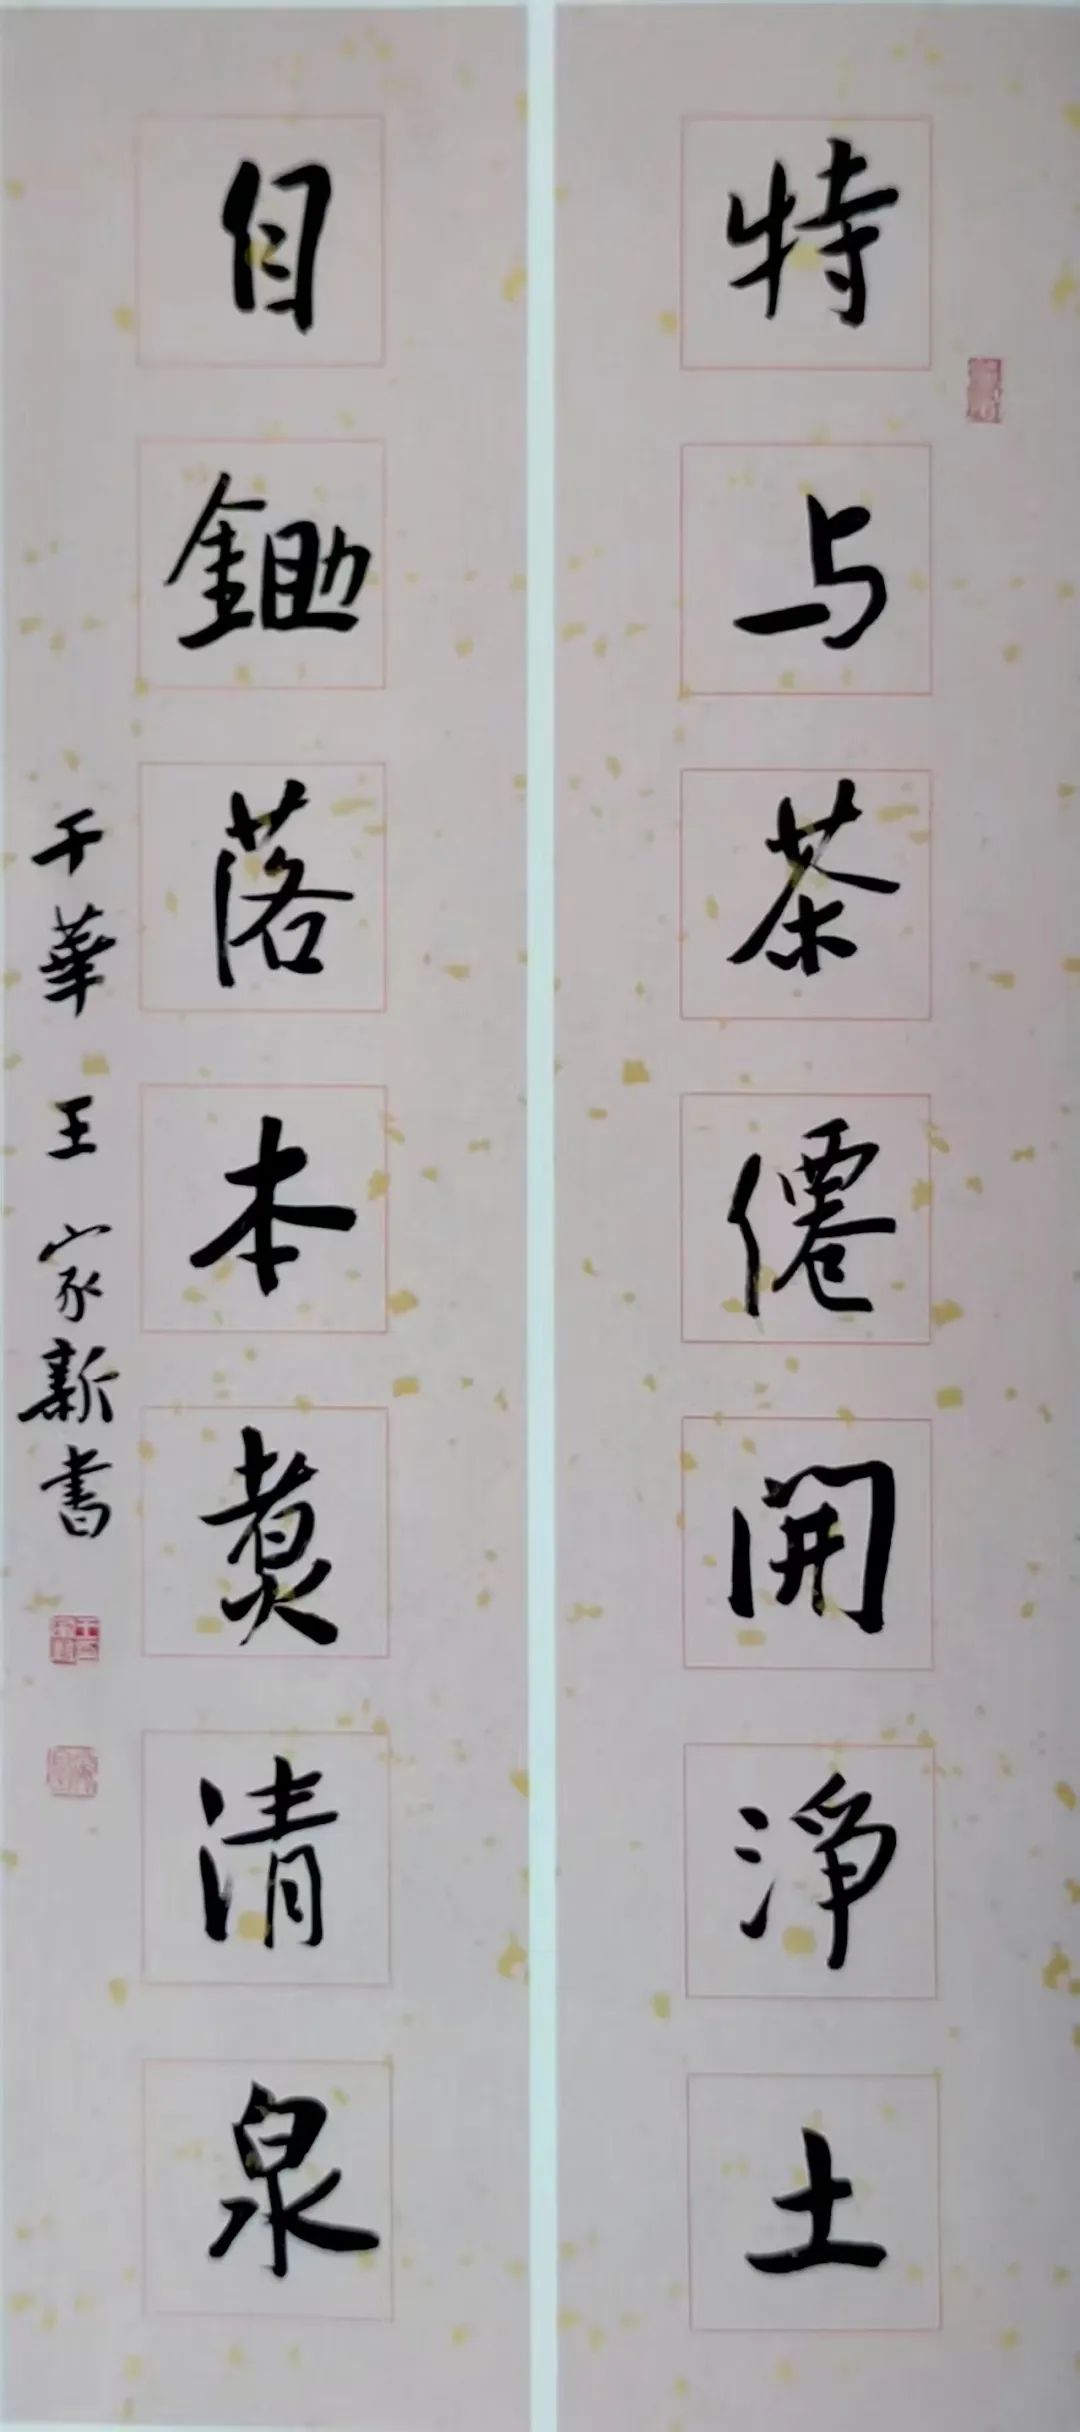 特与茶僊開淨土
自鋤落本煑清泉
千華 王家新書